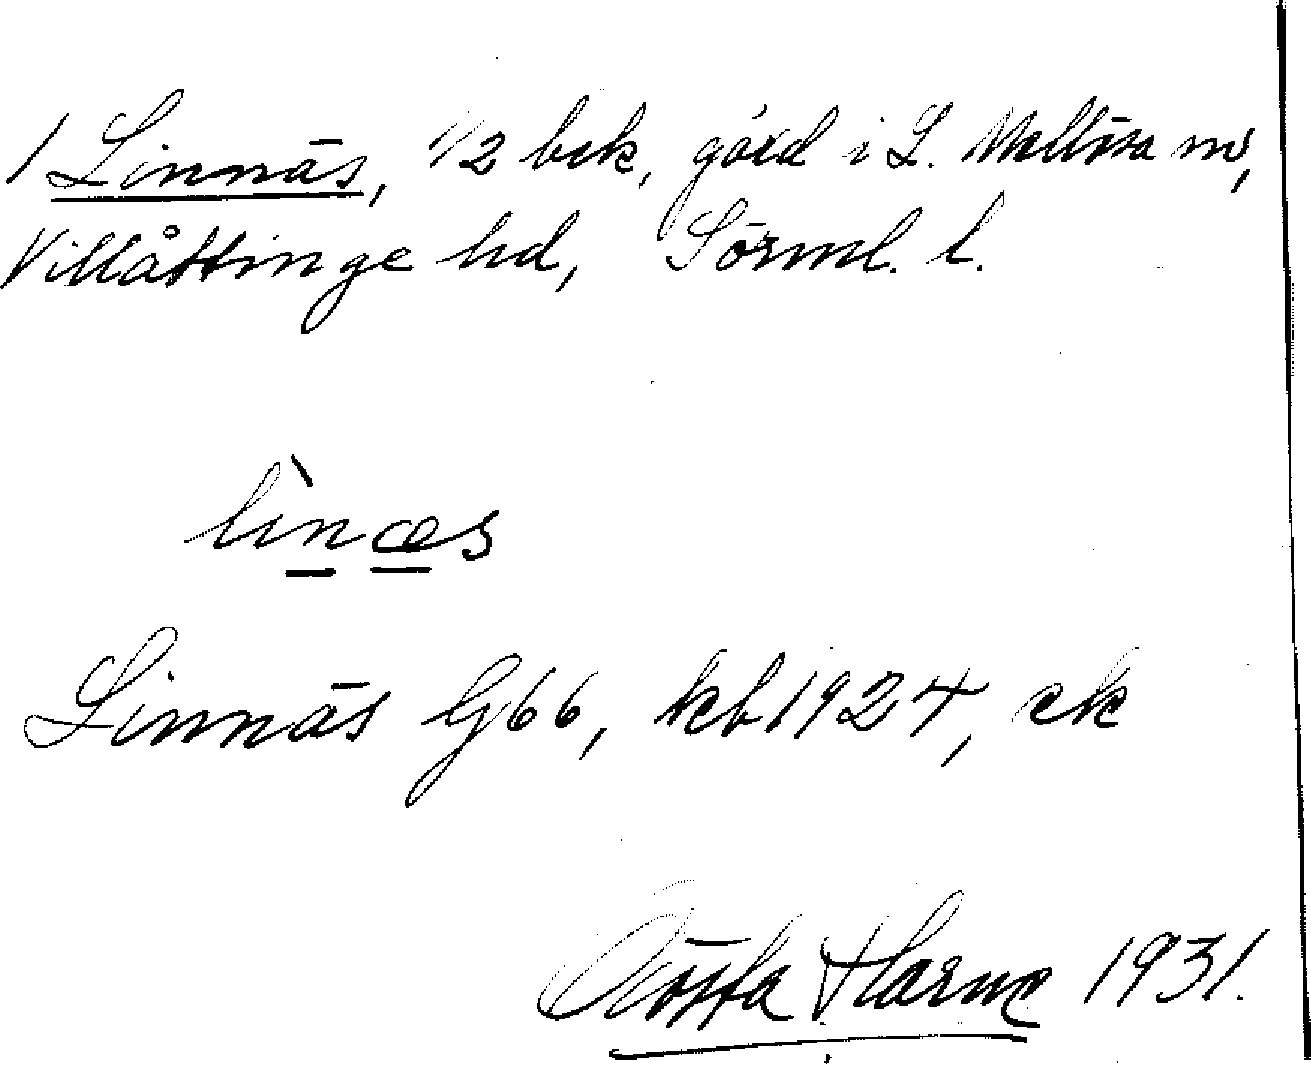 1 Linnäs, 1/2 bck, gård i L. Mellösa sn,
Villåttinge hd, Sörml. l.
lìnæs
Linnäs G66, kb1924, ek
Gösta Harne 1931.